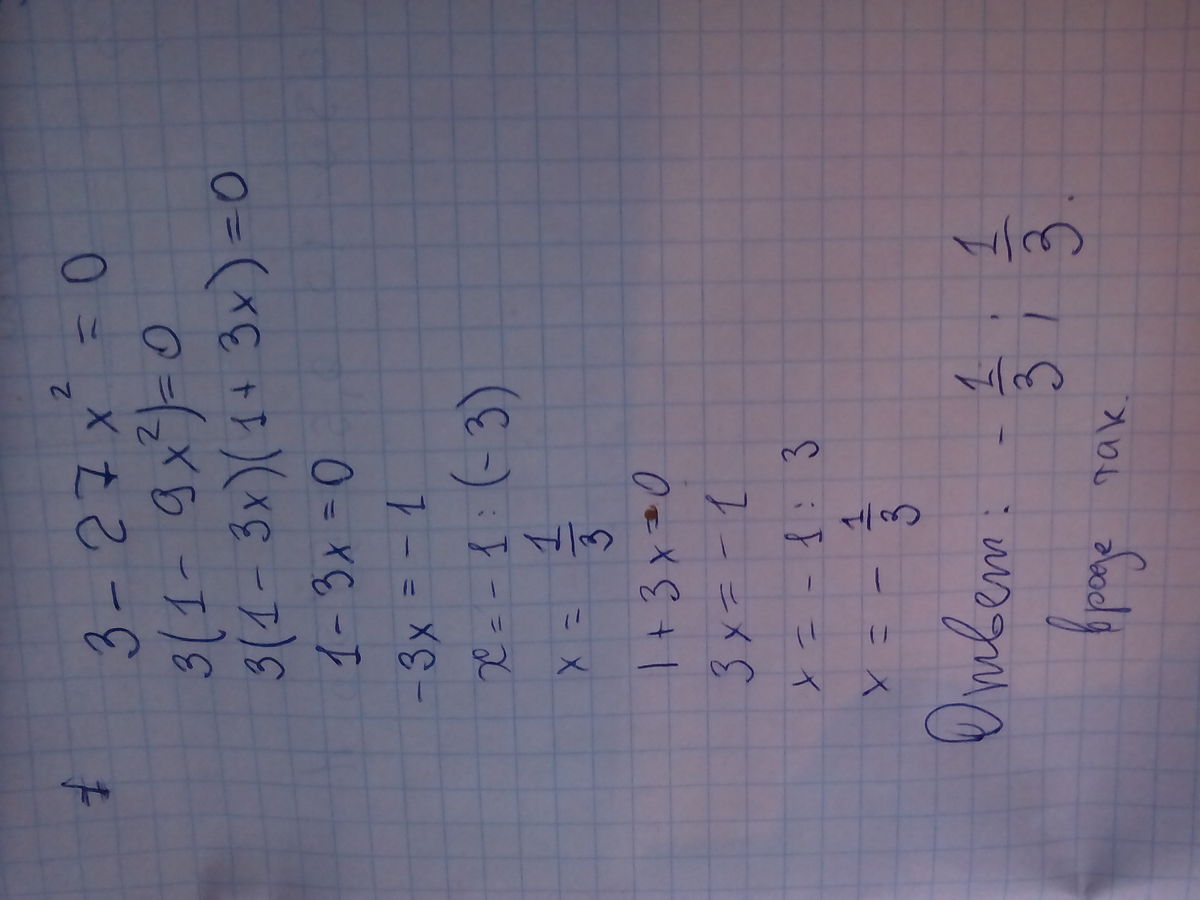 3 - 27x² = 0
3(1 - 9x²) = 0
3(1 - 3x)(1 + 3x) = 0
1 - 3x = 0
-3x = -1
x = -1 : (-3)
x = 1/3
1 + 3x = 0
3x = -1
x = -1 : 3
x = - 1/3
Ответ: - 1/3 ; 1/3.
вроде так.